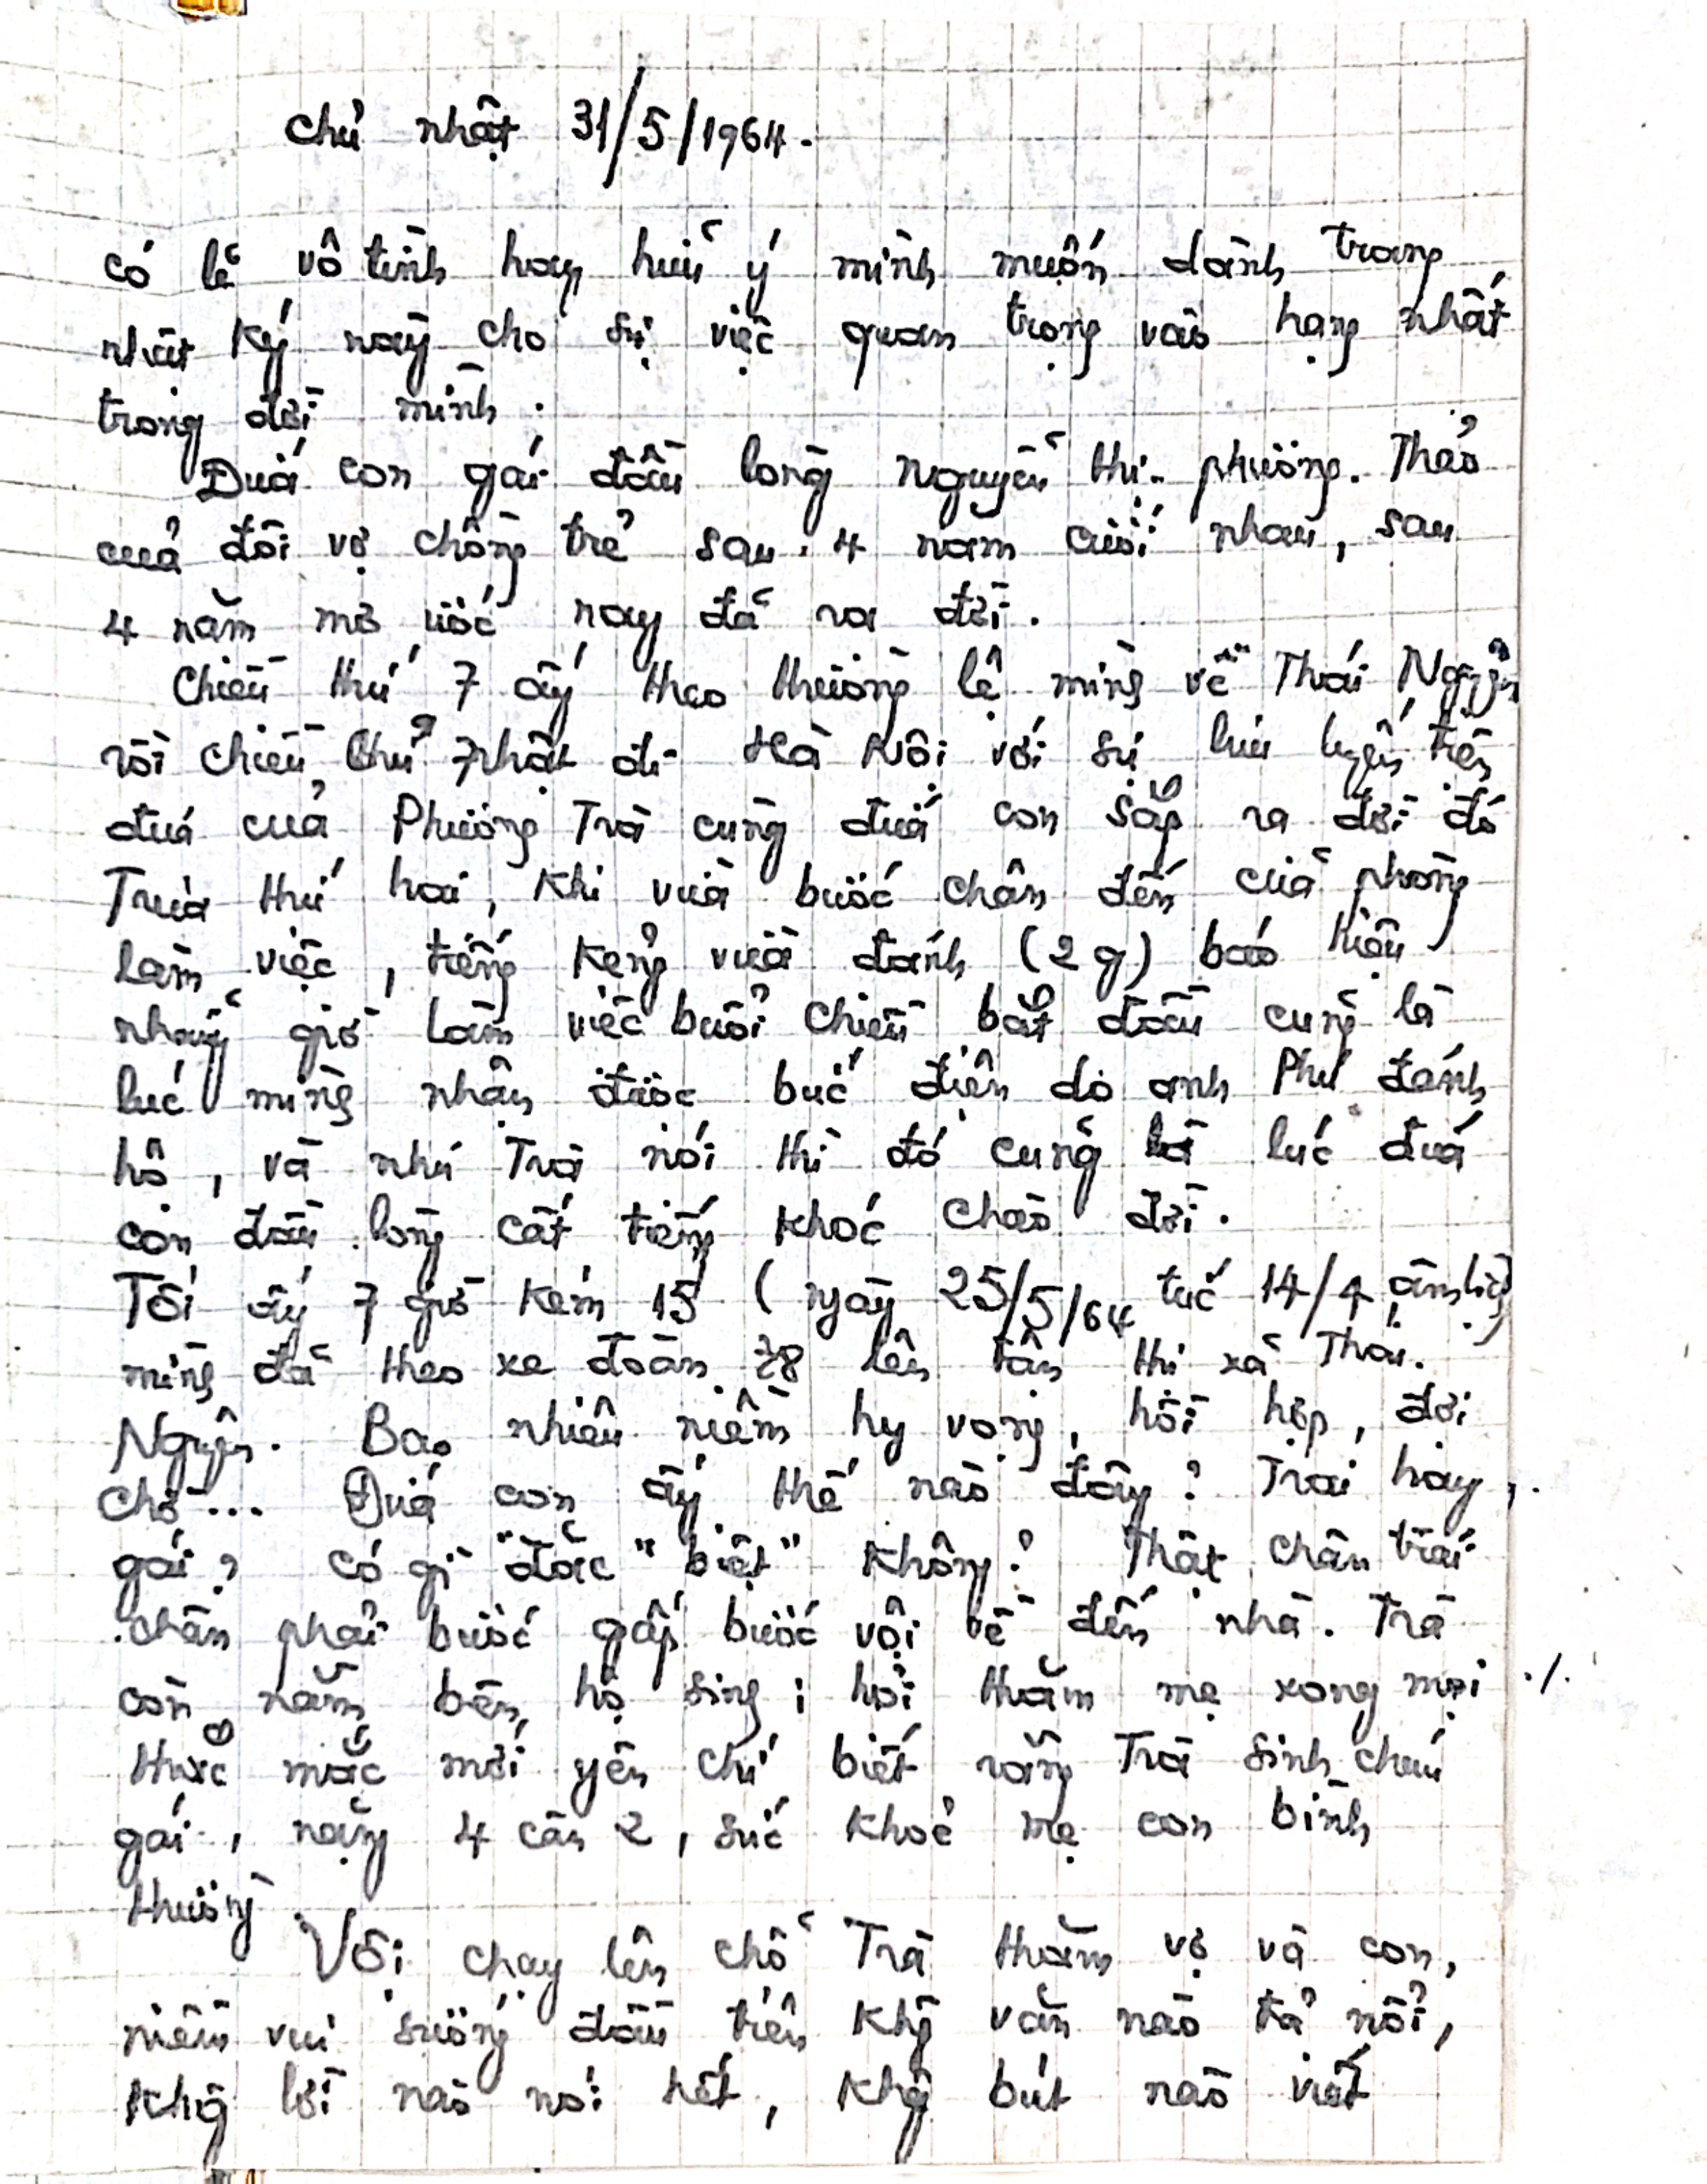 Chủ nhật 31/5/1964.
Có lẽ vô tình hay hữu ý mình muốn dành trang
nhật ký này cho sự việc quan trọng vào hạng nhất
trong đời mình.
Đứa con gái đầu lòng Nguyễn thị phương Thảo
của đôi vợ chồng trẻ sau 4 năm cưới nhau, sau
4 năm mơ ước nay đã ra đời.
Chiều thứ 7 ấy theo thường lệ mình về Thái Nguyên
rồi chiều chủ nhật đi Hà Nội với sự lưu luyến tiễn
đưa của Phương Trà cùng đứa con sắp ra đời đó
Trưa thứ hai, khi vừa bước chân đến cửa phòng
làm việc, tiếng kẻng vừa đánh (2g) báo hiệu
những giờ làm việc buổi chiều bắt đầu cũng là
lúc mình nhận được bức điện do anh Phú đánh
hộ, và như Trà nói thì đó cũng là lúc đứa
con đầu lòng cất tiếng khóc chào đời.
Tối ấy 7 giờ kém 15 (ngày 25/5/64 tức 14/4 âm lịch)
mình đã theo xe đoàn 78 lên tận thị xã Thái
Nguyên. Bao nhiêu niềm hy vọng, hồi hộp, đợi
chờ... Đứa con ấy thế nào đây? Trai hay
gái? Có gì "đặc "biệt" không? Thật chân trái
chân phải bước gấp bước vội về đến nhà. Trà
còn nằm bên hộ sinh; hỏi thăm mẹ xong mọi
thắc mắc mới yên chỉ biết rằng Trà sinh cháu
gái, nặng 4 cân 2, sức khoẻ mẹ con bình
thường.
Vội chạy lên chỗ Trà thăm vợ và con,
niềm vui sướng đầu tiên khg văn nào tả nổi,
khg lời nào nói hết, khg bút nào viết